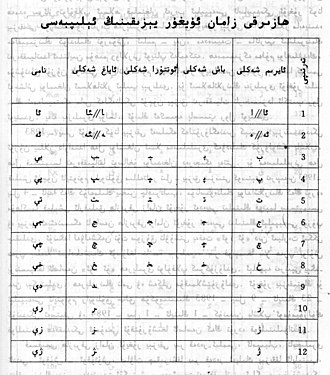 ھازىرقى زامان ئۇيغۇر يېزىقىنىڭ ئېلىپبەسى
تەرتىپى ئايرىم شەكلى باش شەكلى ئوتتۇرا شەكلى ئاياغ شەكلى نامى
1 ئا//ا ـا//ئا ئا
2 ئە//ە ـە//ئە ئە
3 ب بـ ـبـ ـب بې
4 پ پـ ـپـ ـپ پې
5 ت تـ ـتـ ـت تې
6 ج جـ ـجـ ـج جې
7 چ چـ ـچـ ـچ چې
8 خ خـ ـخـ ـخ خې
9 د ـد دې
10 ر ـر رې
11 ز ـز زې
12 ژ ـژ ژې